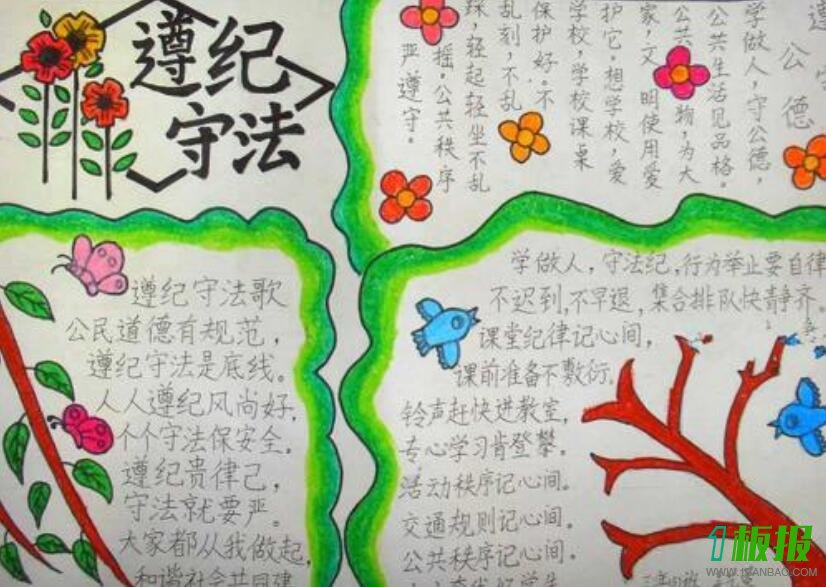 遵纪
守法
遵守
公德
学做人，守公德，
公共生活见品格。
公共物，为大
家，文明使用爱
护它。想学校，爱
学校，学校课桌
保护好。不
乱刻，不乱
踩，轻起轻坐不乱
摇，公共秩序
严遵守。
遵纪守法歌
公民道德有规范，
遵纪守法是底线。
人人遵纪风尚好，
个个守法保安全。
遵纪贵律己，
守法就要严。
大家都从我做起，
和谐社会共同建
学做人，守法纪，行为举止要自律
不迟到，不早退，集合排队快静齐。
课堂纪律记心间，
课前准备不敷衍。
铃声赶快进教室，
专心学习肯登攀。
活动秩序记心间。
交通规则记心间。
公共秩序记心间。
1板报
WWW.1BANBAO.COM